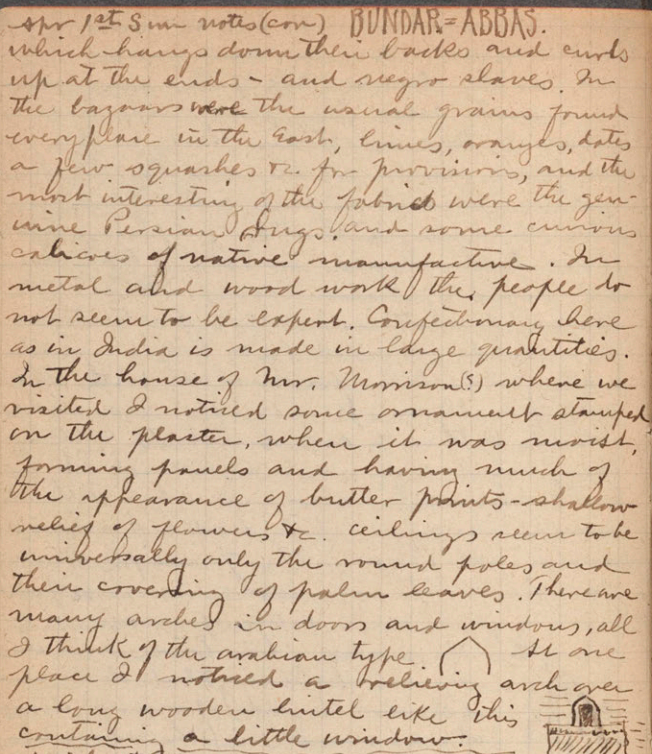 Apr 1st Sun notes (con) BUNDAR=ABBAS.
which hangs down their backs and curls
up at the ends - and negro slaves. In
the bazaars were the usual grains found
everyplace in the East, limes, oranges, dates
a few squashes &c. for provisions, and the
most interesting of the fabrics were the gen-
uine Persian Rugs. and some curious
calicoes of native manufactive. In
metal and wood work the people do
not seem to be expert. Confectionary here
as in India is made in large quantities.
In the house of Mr. Morrison(?) where we
visited I noticed some ornament stamped
on the plaster, when it was moist,
forming panels and having much of
the appearance of butter prints - shallow
relief of flowers &c. ceilings seem to be
universally only the round poles and
their covering of palm leaves. There are
many arches in doors and windows, all
I think of the arabian type At one
place I noticed a relieving arch over
a long wooden lintel like this
containing a little window